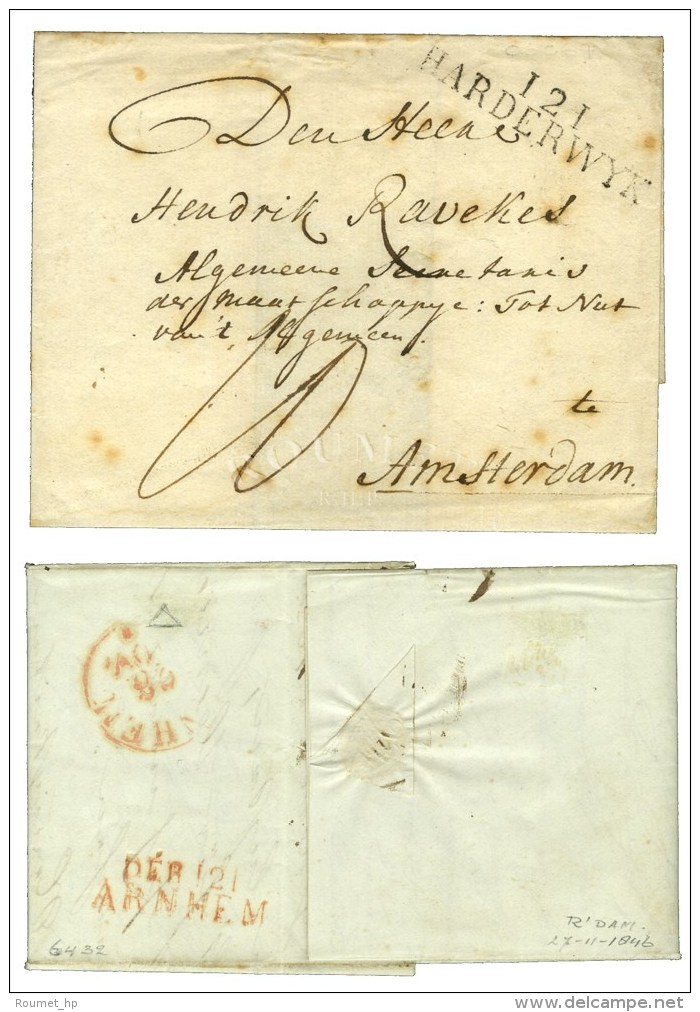 121
HARDERWYK
Den Heer
Hendrik Ravekes
Algemeene Secretaris
der maatschappye: Tot Nut
van't Algemeen.
te
Amsterdam.
ROUMET
NHEM
DÉB 121
ARNHEM
6432
R'DAM.
27-11-1846
Roumet_hp
www.delcampe.net